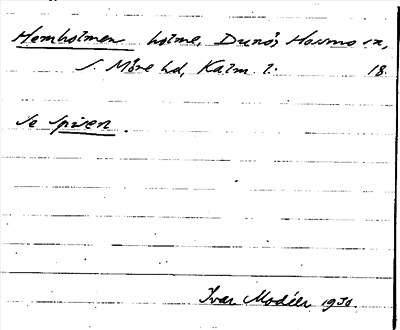 Hemholmen holme, Dunö, Hossmo sn,
S. Möre hd, Kalm l. 18.
Se Spisen.
Ivar Modéer 1930.